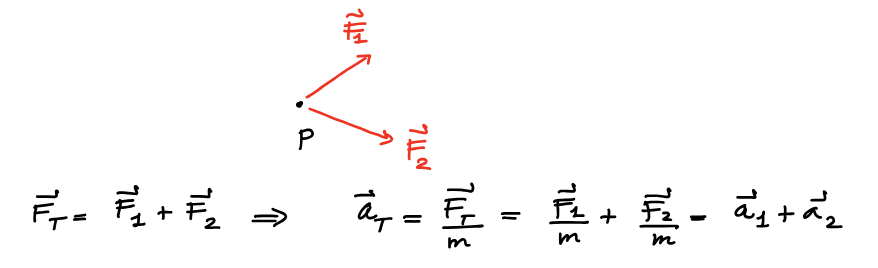 F⃗₁
P
F⃗₂
F⃗_T = F⃗₁ + F⃗₂ ⇒ a⃗_T = F⃗_T/m = F⃗₁/m + F⃗₂/m = a⃗₁ + a⃗₂